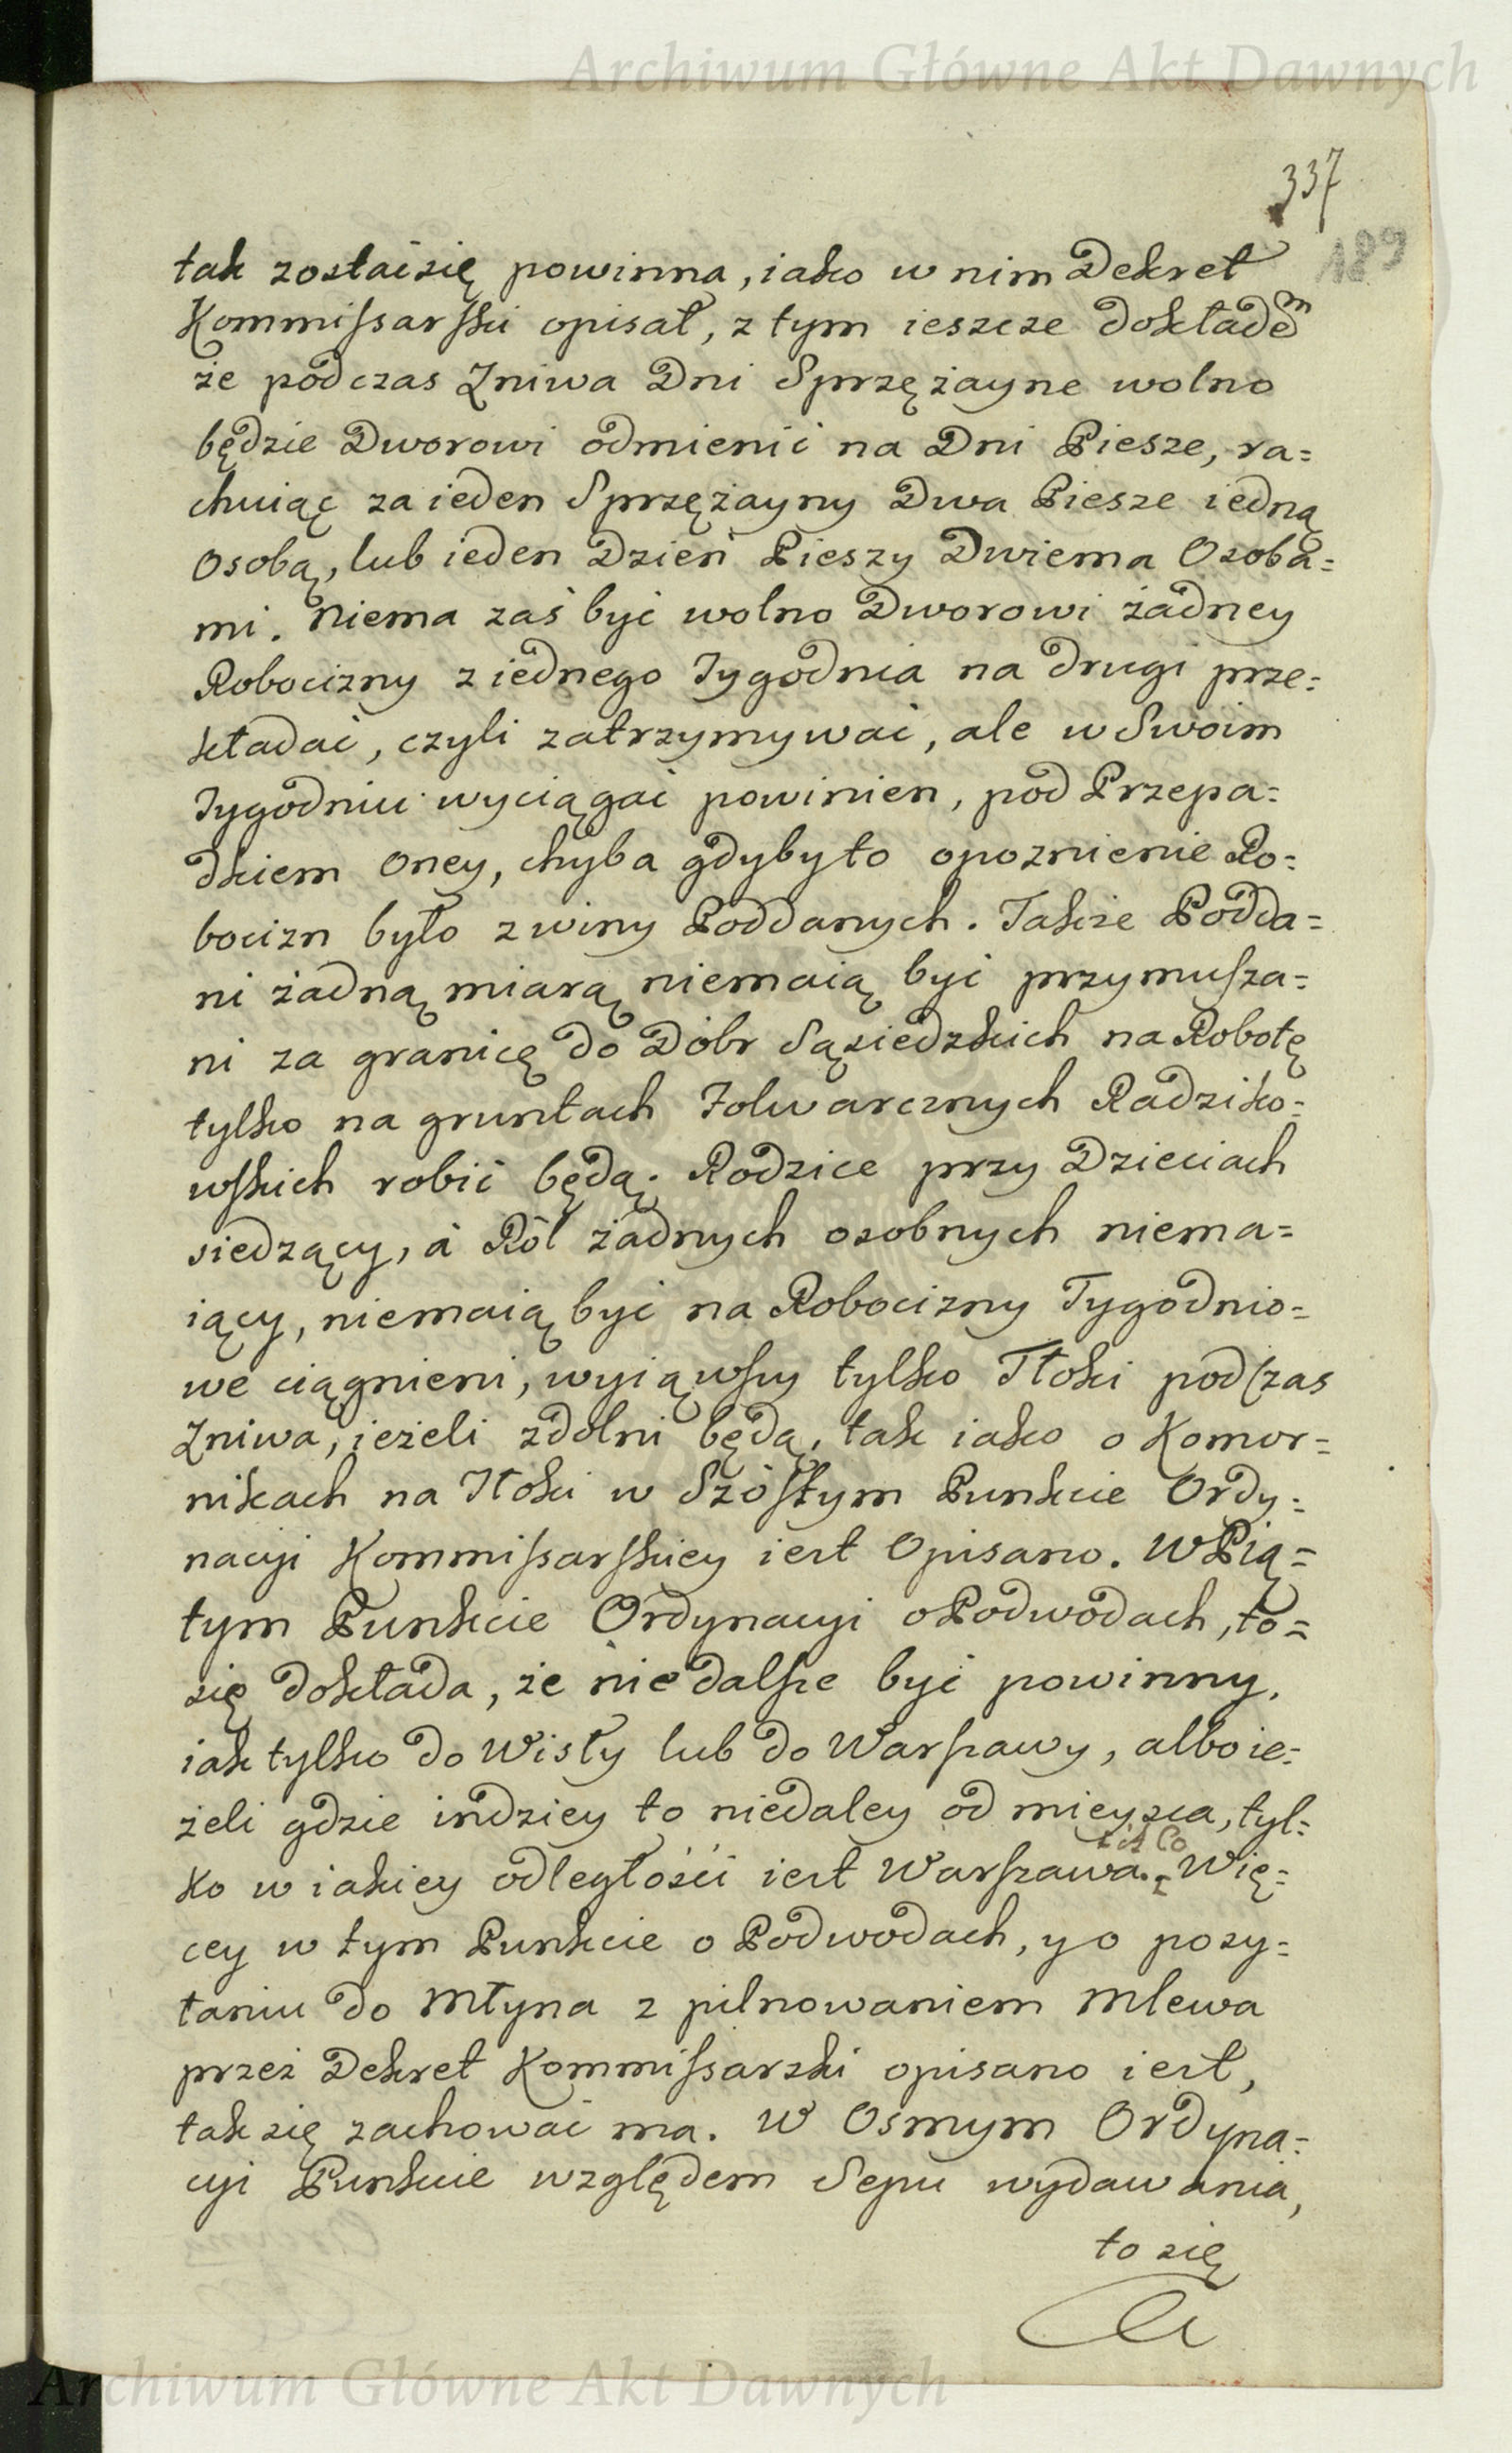 Archiwum Główne Akt Dawnych
337
189
tak zostać się powinna, iako w nim Dekret
Kommissarski opisał, z tym ieszcze dokładem
że podczas Zniwa Dni Sprzężayne wolno
będzie Dworowi odmienić na Dni Piesze, ra=
chuiąc za ieden Sprzężayny Dwa Piesze iedną
Osobą, lub ieden Dzień Pieszy Dwiema Osoba=
mi. Niema zaś być wolno Dworowi żadney
Robocizny z iednego Tygodnia na drugi prze=
kładać, czyli zatrzymywać, ale w Swoim
Tygodniu wyciągać powinien, pod Przepa=
dkiem Oney, chyba gdyby to opoznienie Ro=
bocizn było z winy Poddanych. Także Podda=
ni żadną miarą niemaią być przymusza=
ni za granicę do Dóbr Sąsiedzkich na Robotę
tylko na gruntach Folwarcznych Radziko=
wskich robić będą. Rodzice przy Dzieciach
siedzący, a Ról żadnych osobnych niema=
iący, niemaią być na Robocizny Tygodnio=
we ciągnieni, wyiąwszy tylko Tłoki podczas
Zniwa, ieżeli zdolni będą, tak iako o Komor=
nikach na Tłoki w Szóstym Punkcie Ordy=
nacyi Kommissarskiey iest Opisano. W Pią=
tym Punkcie Ordynacyi o Podwodach, to=
się dokłada, że nie dalsze być powinny,
iak tylko do Wisły lub do Warszawy, albo ie=
żeli gdzie indziey to niedaley od mieysca, tyl=
ko w iakiey odległości iest Warszawa. Wię=
cey w tym Punkcie o Podwodach, y o posy=
łaniu do Młyna z pilnowaniem Mlewa
przez Dekret Kommissarski opisano iest,
tak się zachować ma. W Osmym Ordyna=
cyi Punkcie względem Sepu wydawania,
to się
Archiwum Główne Akt Dawnych